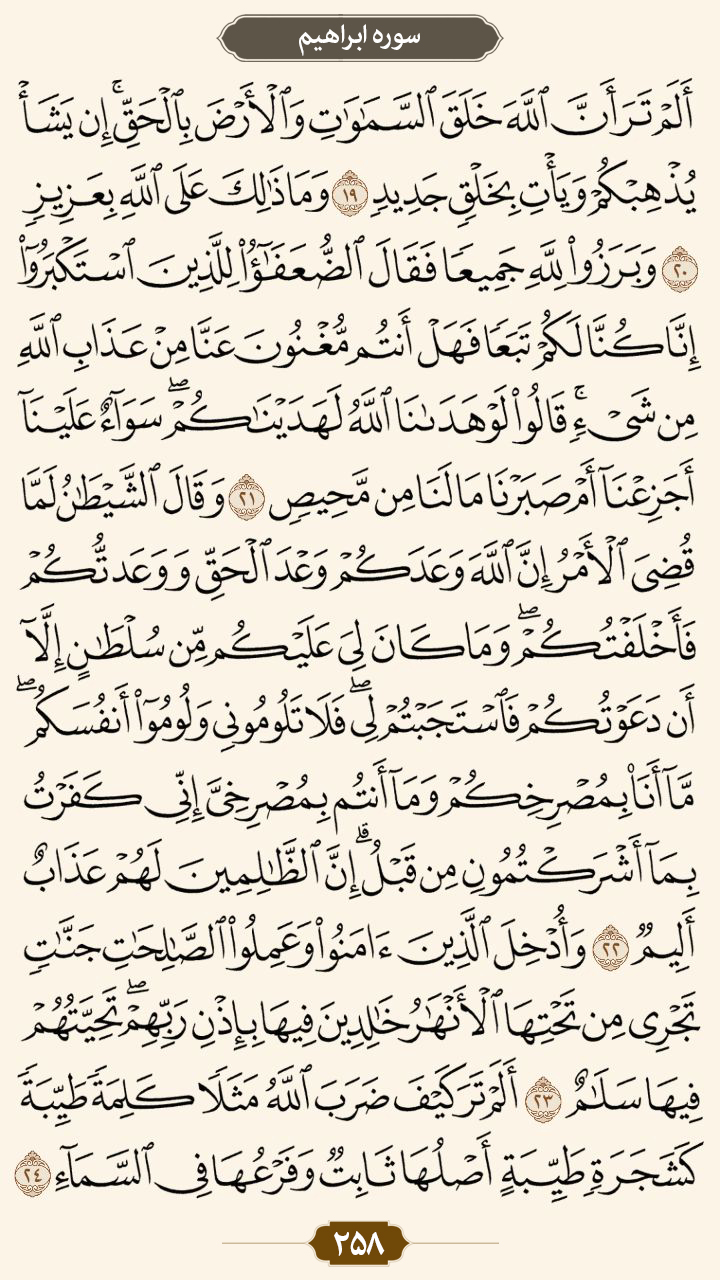 سوره ابراهیم
أَلَمْ تَرَ أَنَّ ٱللَّهَ خَلَقَ ٱلسَّمَٰوَٰتِ وَٱلْأَرْضَ بِٱلْحَقِّ ۚ إِن يَشَأْ
يُذْهِبْكُمْ وَيَأْتِ بِخَلْقٍ جَدِيدٍ ١٩ وَمَا ذَٰلِكَ عَلَى ٱللَّهِ بِعَزِيزٍ
٢٠ وَبَرَزُوا۟ لِلَّهِ جَمِيعًا فَقَالَ ٱلضُّعَفَٰٓؤُا۟ لِلَّذِينَ ٱسْتَكْبَرُوٓا۟
إِنَّا كُنَّا لَكُمْ تَبَعًا فَهَلْ أَنتُم مُّغْنُونَ عَنَّا مِنْ عَذَابِ ٱللَّهِ
مِن شَىْءٍ ۚ قَالُوا۟ لَوْ هَدَىٰنَا ٱللَّهُ لَهَدَيْنَٰكُمْ ۖ سَوَآءٌ عَلَيْنَآ
أَجَزِعْنَآ أَمْ صَبَرْنَا مَا لَنَا مِن مَّحِيصٍ ٢١ وَقَالَ ٱلشَّيْطَٰنُ لَمَّا
قُضِىَ ٱلْأَمْرُ إِنَّ ٱللَّهَ وَعَدَكُمْ وَعْدَ ٱلْحَقِّ وَوَعَدتُّكُمْ
فَأَخْلَفْتُكُمْ ۖ وَمَا كَانَ لِىَ عَلَيْكُم مِّن سُلْطَٰنٍ إِلَّآ
أَن دَعَوْتُكُمْ فَٱسْتَجَبْتُمْ لِى ۖ فَلَا تَلُومُونِى وَلُومُوٓا۟ أَنفُسَكُم ۖ
مَّآ أَنَا۠ بِمُصْرِخِكُمْ وَمَآ أَنتُم بِمُصْرِخِىَّ إِنِّى كَفَرْتُ
بِمَآ أَشْرَكْتُمُونِ مِن قَبْلُ ۗ إِنَّ ٱلظَّٰلِمِينَ لَهُمْ عَذَابٌ
أَلِيمٌ ٢٢ وَأُدْخِلَ ٱلَّذِينَ ءَامَنُوا۟ وَعَمِلُوا۟ ٱلصَّٰلِحَٰتِ جَنَّٰتٍ
تَجْرِى مِن تَحْتِهَا ٱلْأَنْهَٰرُ خَٰلِدِينَ فِيهَا بِإِذْنِ رَبِّهِمْ ۖ تَحِيَّتُهُمْ
فِيهَا سَلَٰمٌ ٢٣ أَلَمْ تَرَ كَيْفَ ضَرَبَ ٱللَّهُ مَثَلًا كَلِمَةً طَيِّبَةً
كَشَجَرَةٍ طَيِّبَةٍ أَصْلُهَا ثَابِتٌ وَفَرْعُهَا فِى ٱلسَّمَآءِ ٢٤
۲۵۸